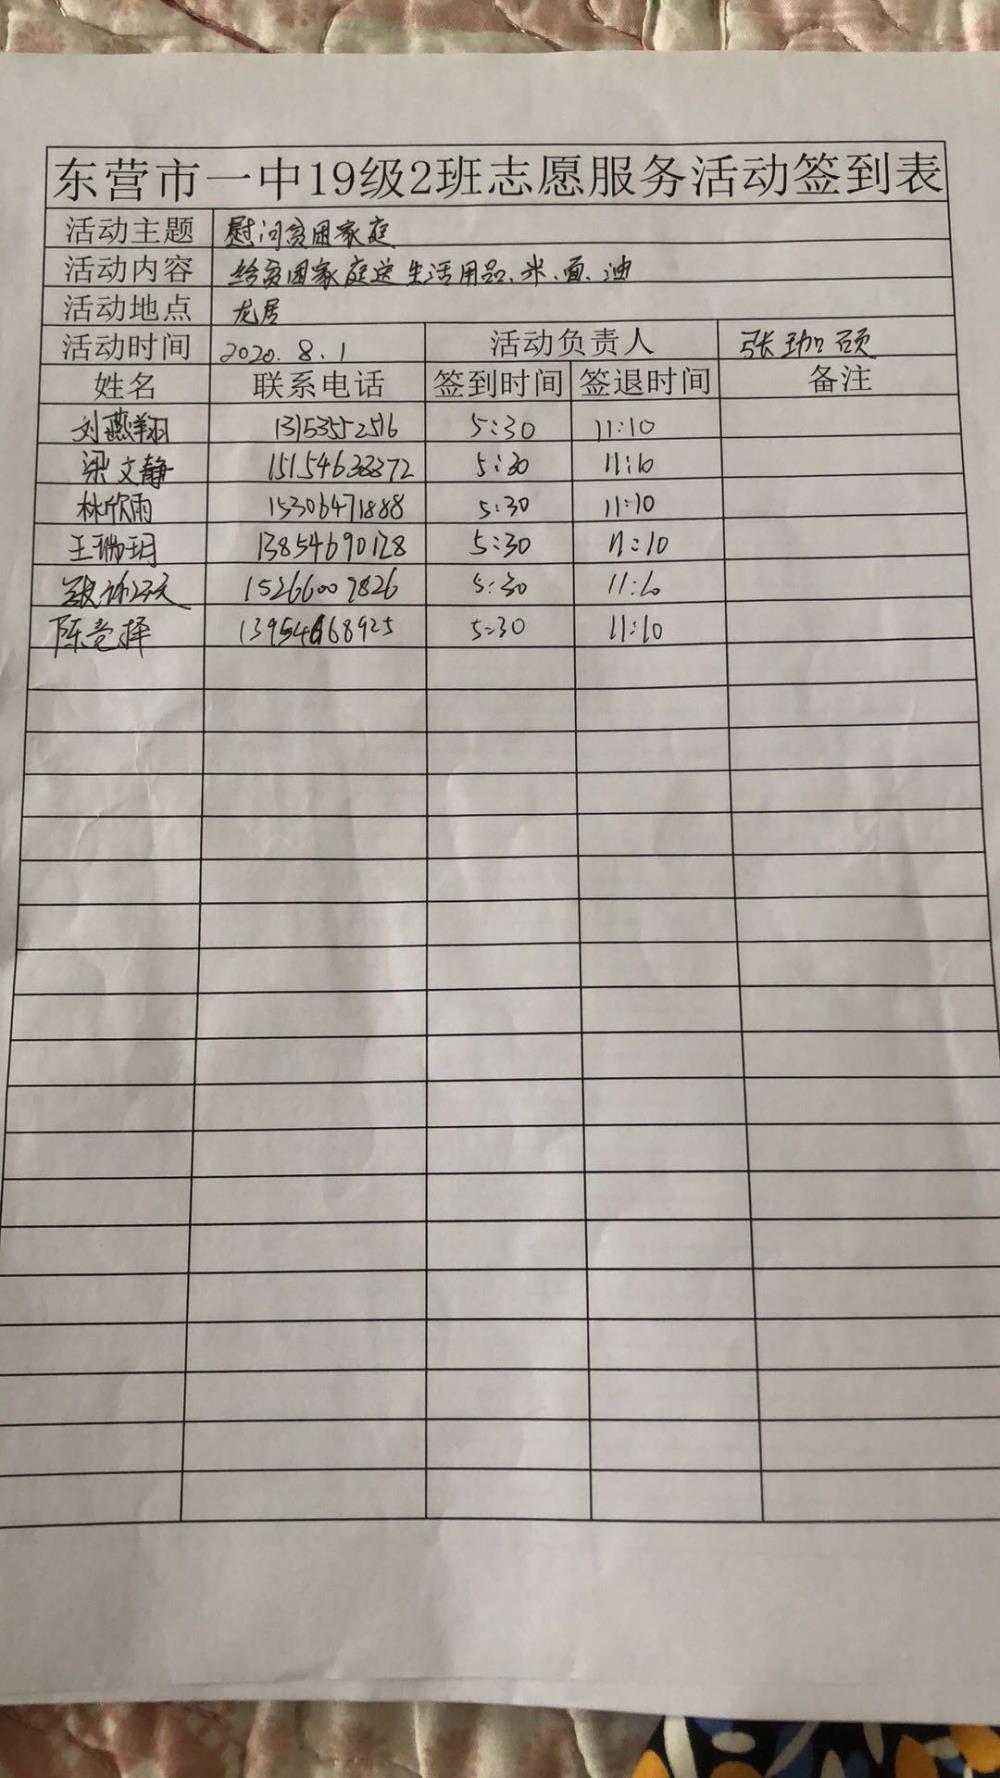 东营市一中19级2班志愿服务活动签到表
活动主题 慰问贫困家庭
活动内容 给贫困家庭送生活用品、米、面、油
活动地点 龙居
活动时间 2020.8.1 活动负责人 张珈硕
姓名 联系电话 签到时间 签退时间 备注
刘燕翔 13153552516 5:30 11:10
梁文静 15154638372 5:30 11:10
林欣雨 15306471888 5:30 11:10
王瑞玥 13854690128 5:30 11:10
15266007826 5:30 11:10
陈竞择 13954668925 5:30 11:10